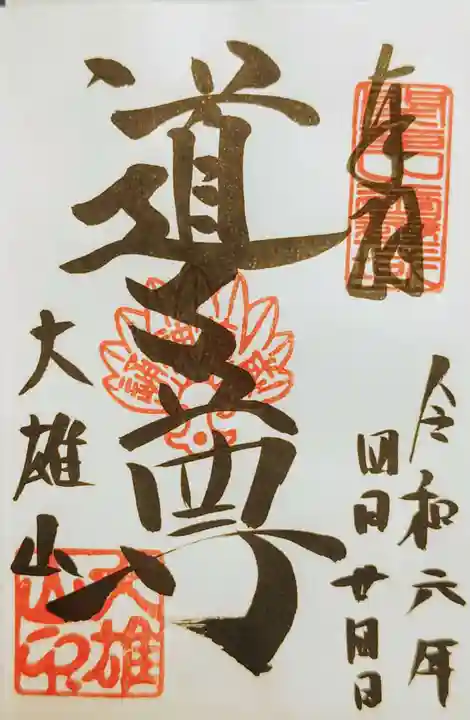 奉拝
令和六年
四月廿四日
道了尊
大雄山
大雄山印